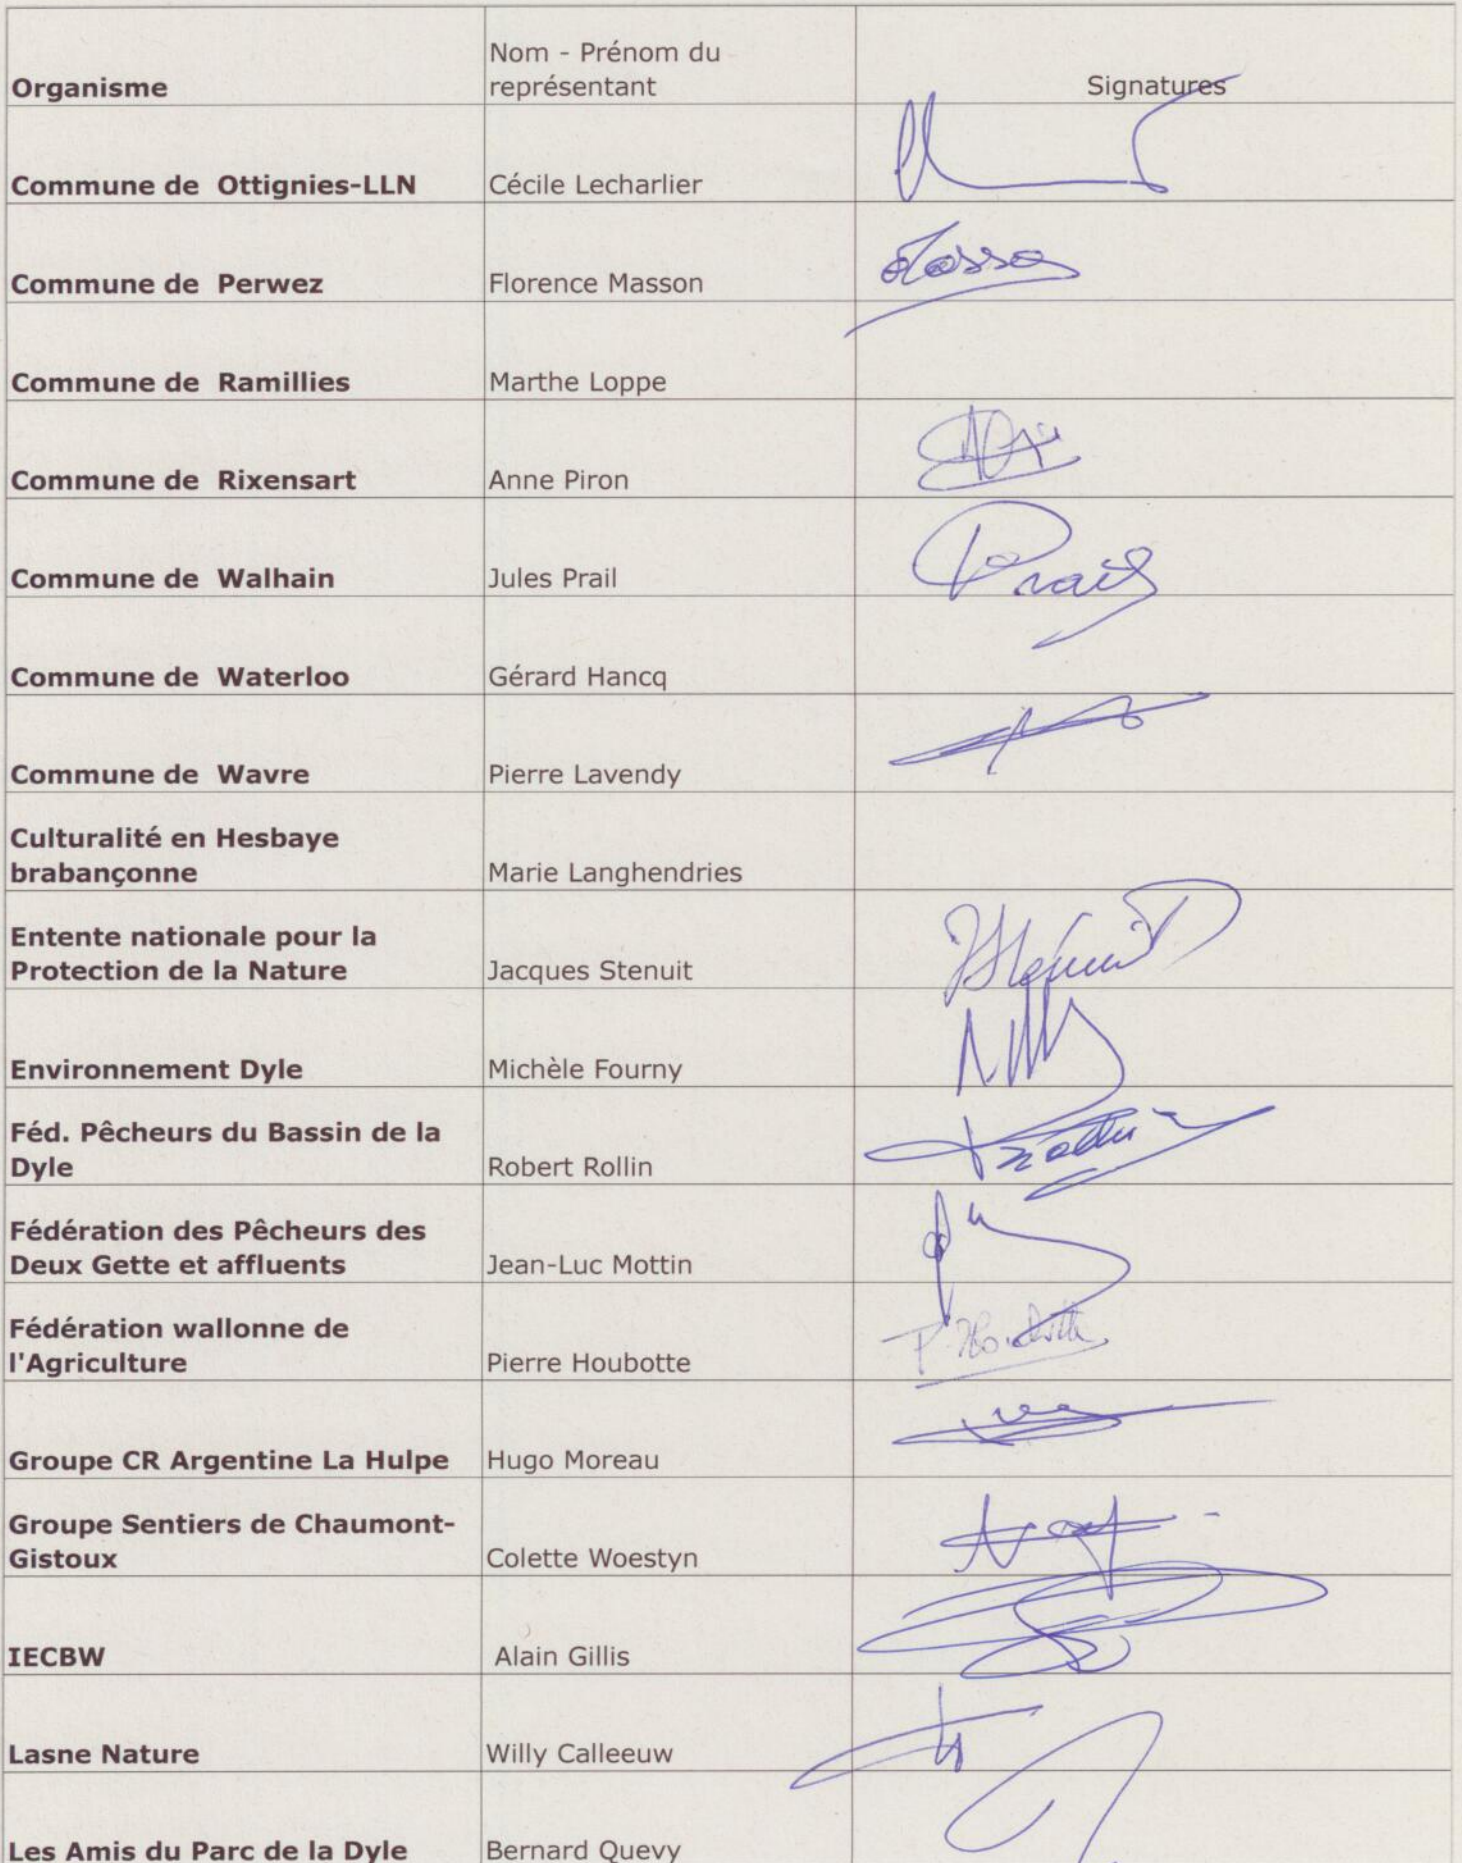 Organisme
Nom - Prénom du
représentant
Signatures
Commune de Ottignies-LLN
Cécile Lecharlier
Commune de Perwez
Florence Masson
Commune de Ramillies
Marthe Loppe
Commune de Rixensart
Anne Piron
Commune de Walhain
Jules Prail
Prail
Commune de Waterloo
Gérard Hancq
Commune de Wavre
Pierre Lavendy
Culturalité en Hesbaye
brabançonne
Marie Langhendries
Entente nationale pour la
Protection de la Nature
Jacques Stenuit
Environnement Dyle
Michèle Fourny
Féd. Pêcheurs du Bassin de la
Dyle
Robert Rollin
Fédération des Pêcheurs des
Deux Gette et affluents
Jean-Luc Mottin
Fédération wallonne de
l'Agriculture
Pierre Houbotte
Groupe CR Argentine La Hulpe
Hugo Moreau
Groupe Sentiers de Chaumont-
Gistoux
Colette Woestyn
IECBW
Alain Gillis
Lasne Nature
Willy Calleeuw
Les Amis du Parc de la Dyle
Bernard Quevy